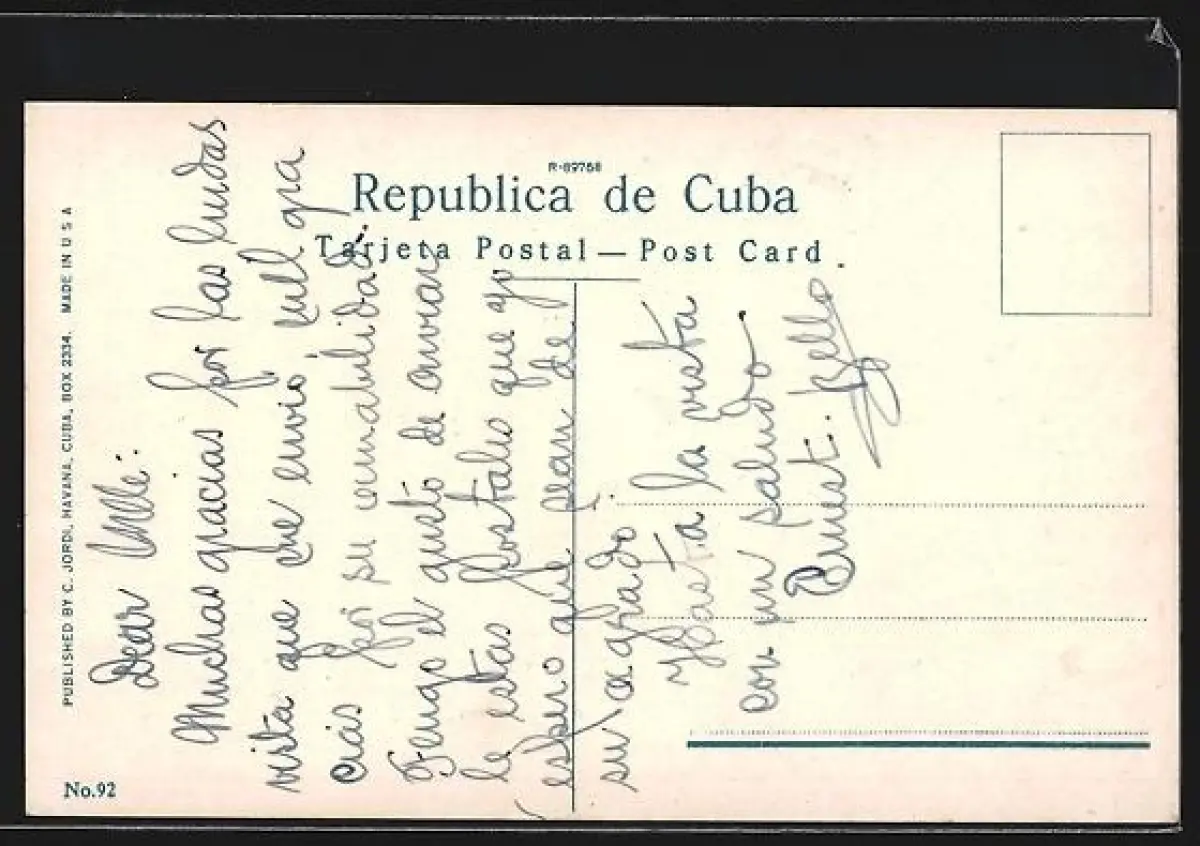 R-69758
Republica de Cuba
Tarjeta Postal — Post Card
PUBLISHED BY C. JORDI, HAVANA, CUBA, BOX 2334. MADE IN U S A
No.92
Dear
Muchas gracias por las lindas
vista que me envió mil gra
cias por su amabilidad.
Tengo el gusto de enviar
le estas postales que yo
espero que sean de
su agrado.
Hasta la vista
con un saludo
Ernest. Bello